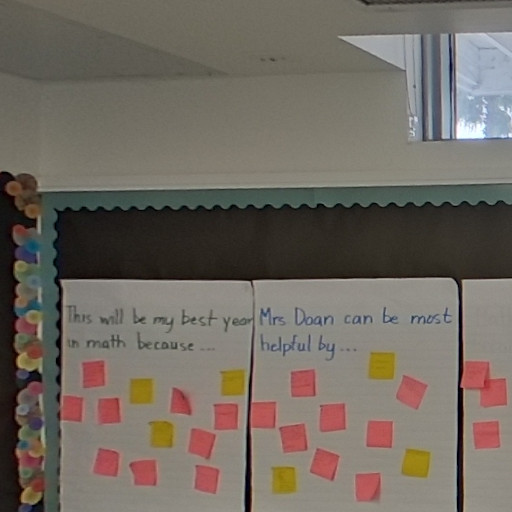 This will be my best year
in math because...
Mrs Doan can be most
helpful by...